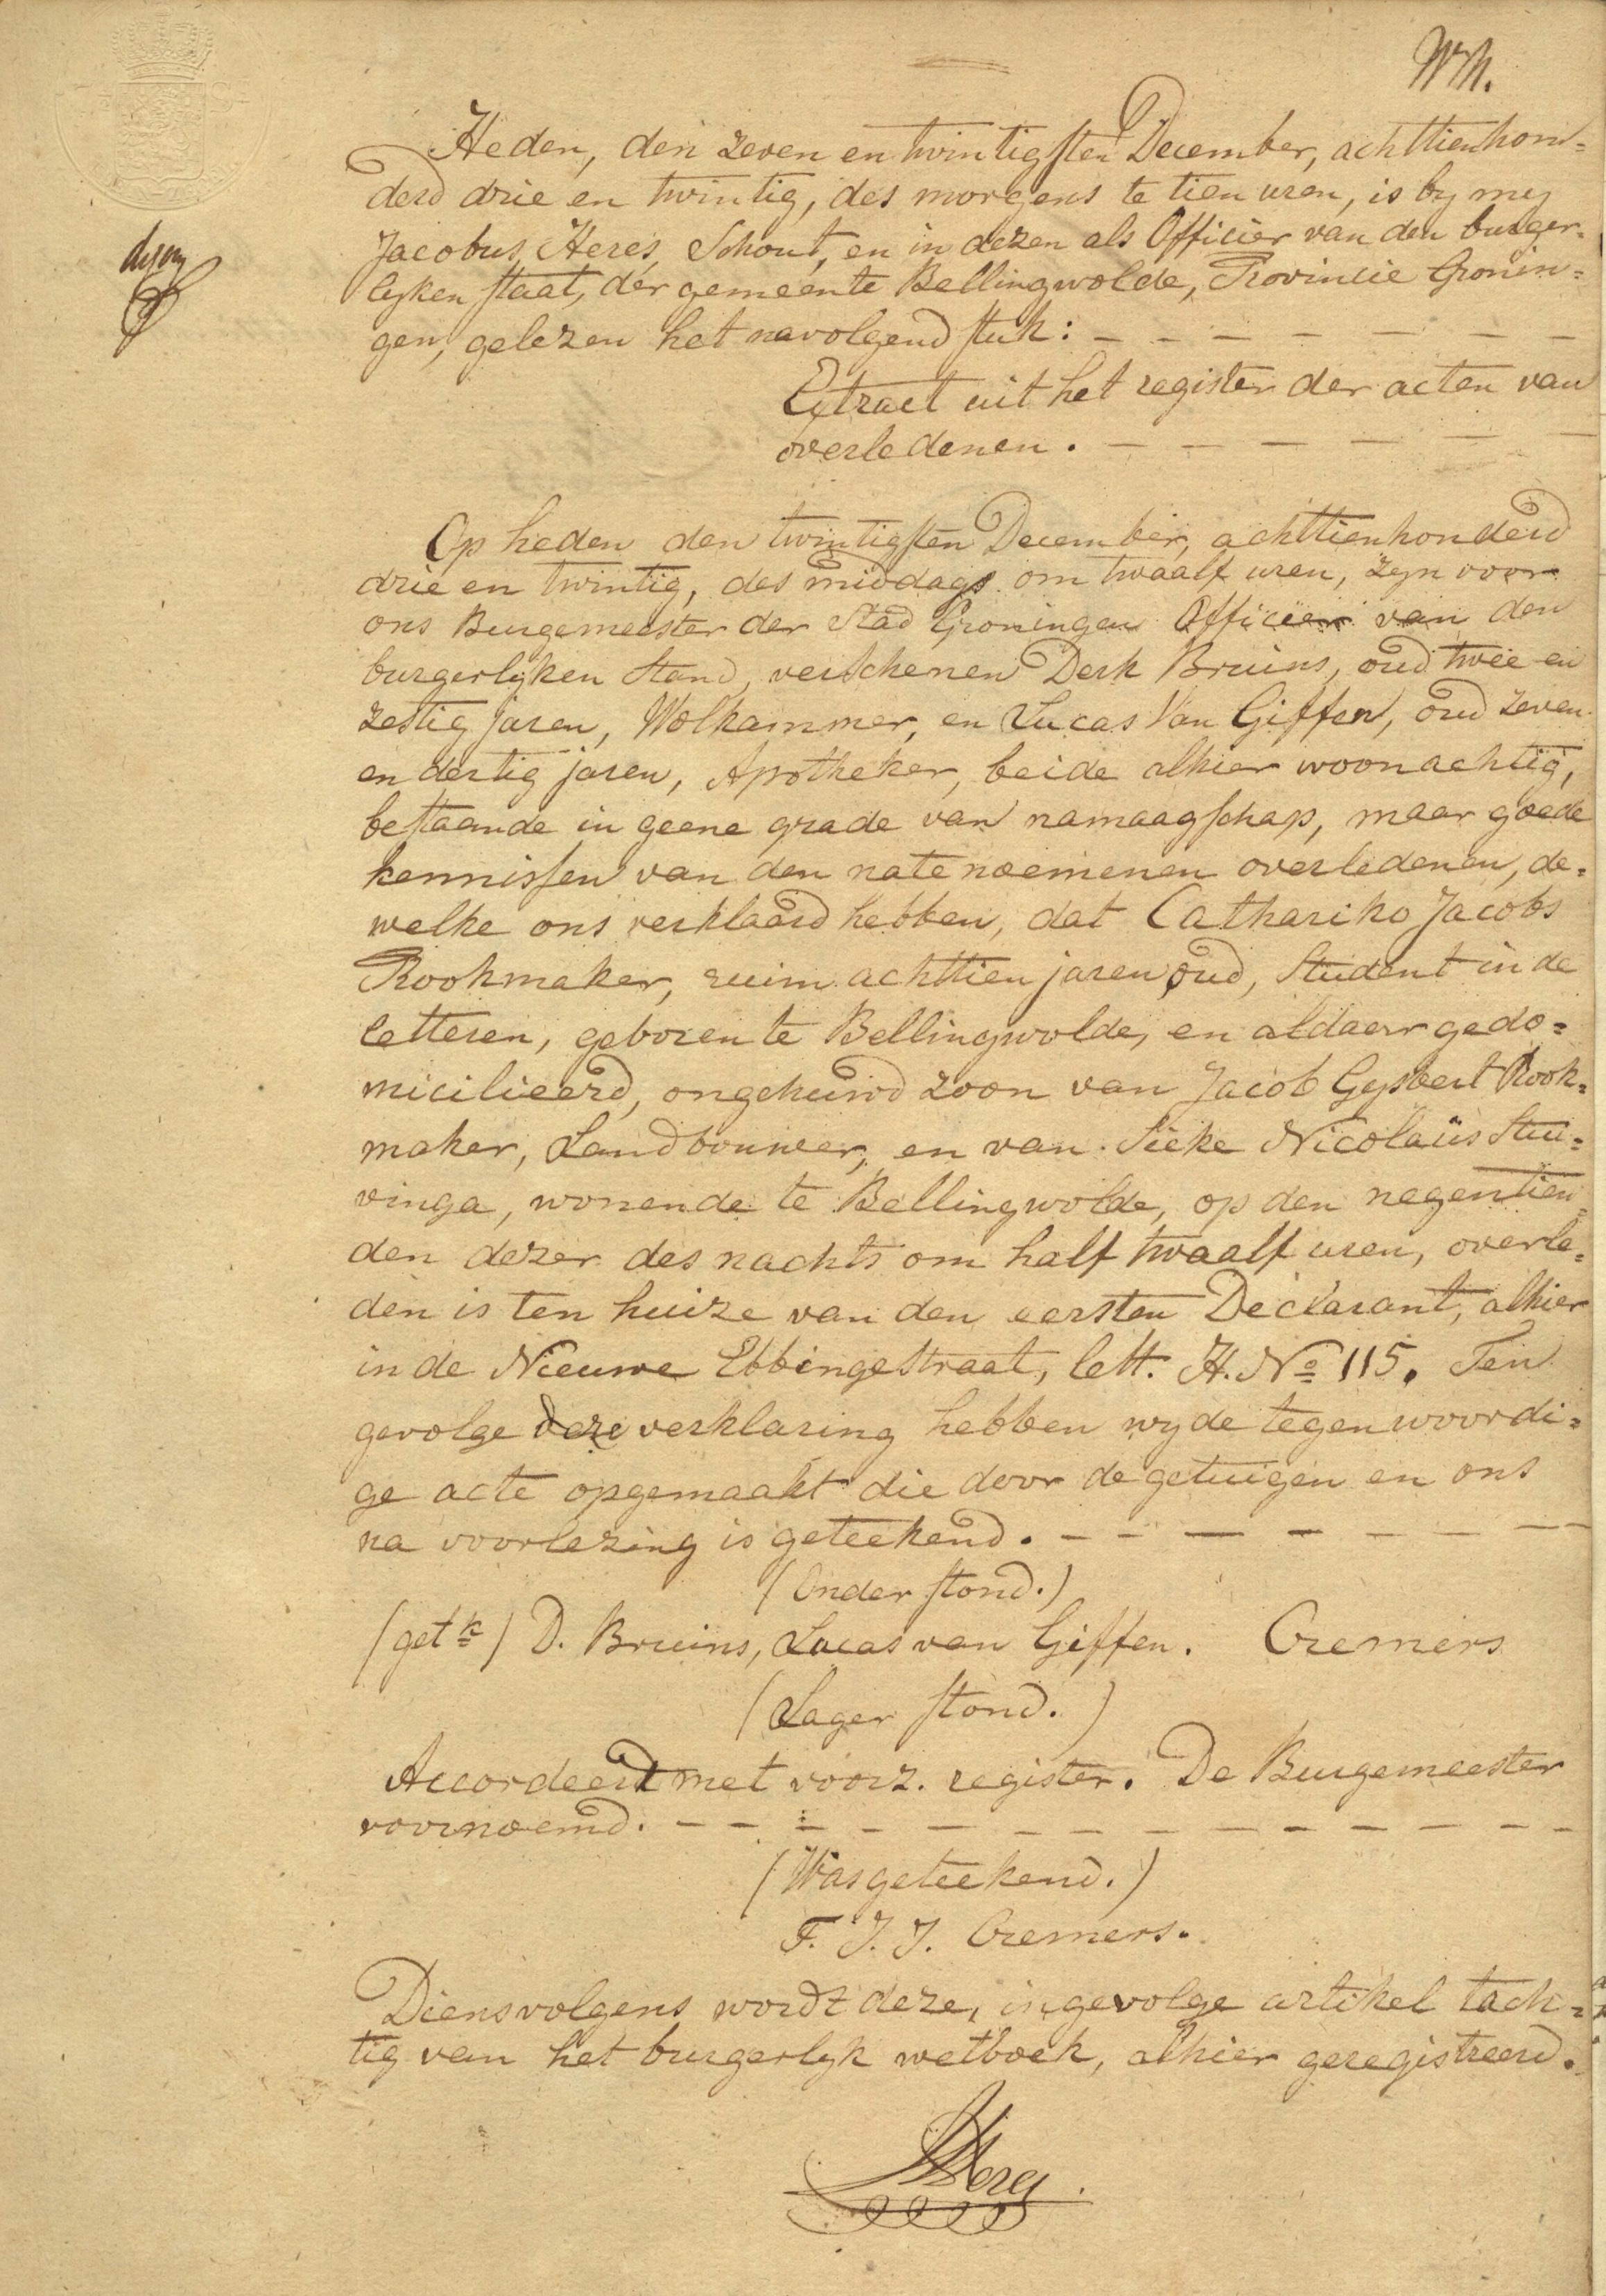 Heden, den zeven en twintigsten December, achttienhon=
derd drie en twintig, des morgens te tien uren, is by my
Jacobus Heres, Schout, en in dezen als Officier van den burger=
lyken staat, der gemeente Bellingwolde, Provincie Gronin=
gen, gelezen het navolgend stuk: — — — — — — —
Extract uit het register der acten van
overledenen. — — — — — —
Op heden den twintigsten December, achttienhonderd
drie en twintig, des middags om twaalf uren, zyn voor
ons Burgemeester der Stad Groningen Officier van den
burgerlyken Stand, verschenen Derk Bruins, oud twee en
zestig jaren, Wolkammer, en Lucas Van Giffen, oud zeven
en dertig jaren, Apotheker, beide alhier woonachtig,
bestaande in geene grade van namaagschap, maar goede
kennissen van den nate noemenen overledenen, de=
welke ons verklaard hebben, dat Cathariko Jacobs
Rookmaker, ruim achttien jaren oud, Student in de
letteren, geboren te Bellingwolde, en aldaar gedo=
micilieerd, ongehuwd zoon van Jacob Gysbert Rook=
maker, Landbouwer, en van Sieke Nicolaüs Stu=
vinga, wonende te Bellingwolde, op den negentien=
den dezer des nachts om half twaalf uren, overle=
den is ten huize van den eersten Declarant, alhier
in de Nieuwe Ebbingestraat, lett. H. No 115. Ten
gevolge deze verklaring hebben wy de tegenwoordi=
ge acte opgemaakt die door de getuigen en ons
na voorlezing is geteekend. — — — — — — —
(Onder stond.)
(getk) D. Bruins, Lucas van Giffen. Cremers
(Lager stond.)
Accordeert met voorz. register. De Burgemeester
voornoemd. — — — — — — — — — — — — —
(Was geteekend.)
F. J. J. Cremers.
Diensvolgens wordt deze, ingevolge artikel tach=
tig van het burgerlyk wetboek, alhier geregistreerd.